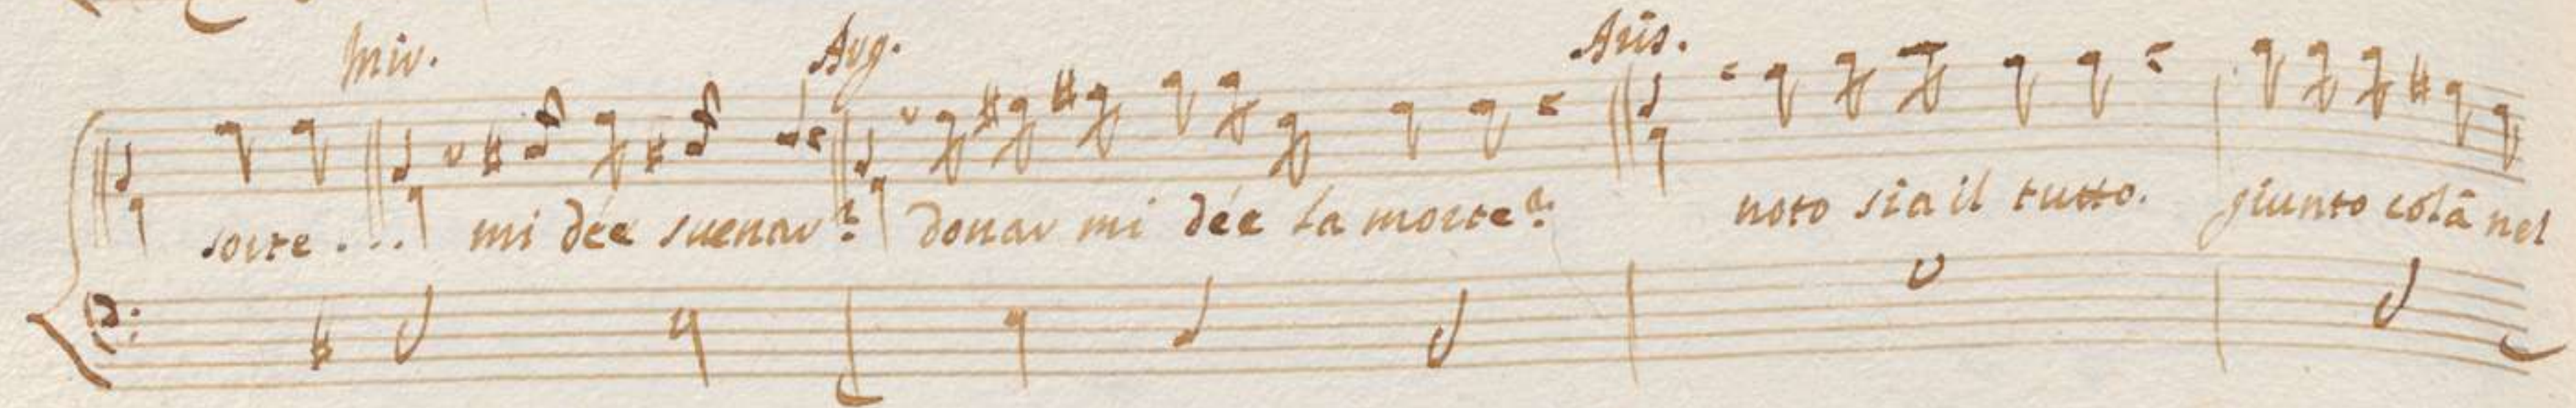 Miv. Arg. Aris.
sorte... mi dée suenar? donar mi dée la morte? noto sia il tutto. giunto colà nel